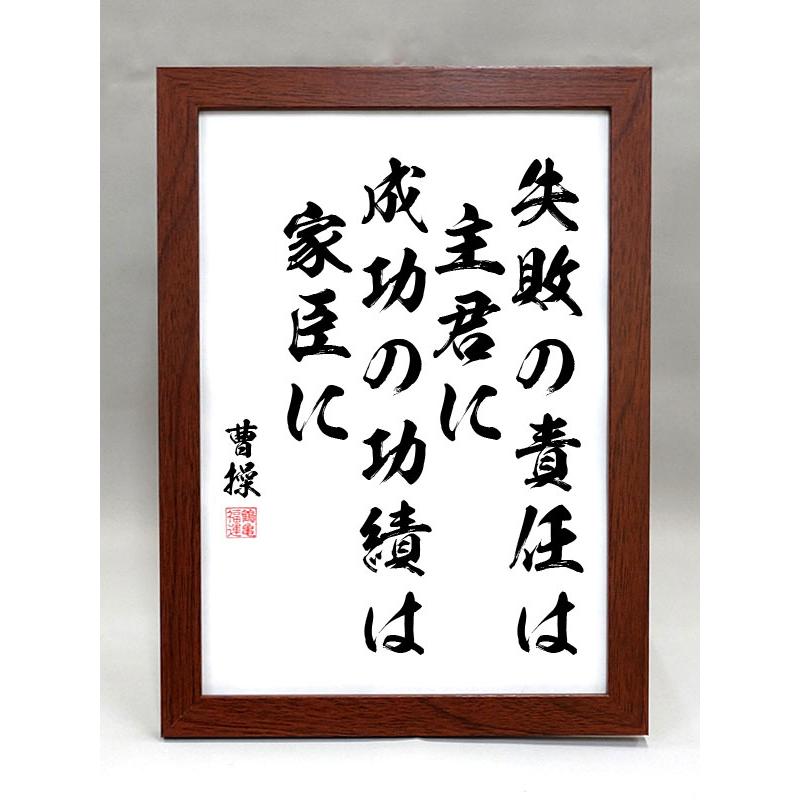 失敗の責任は
主君に
成功の功績は
家臣に
曹操
鶴亀
福運